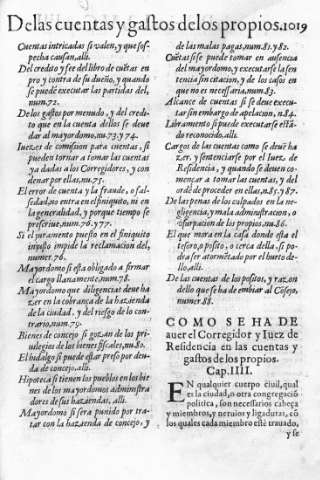 De las cuentas y gastos de los propios. 1019
Cuentas intricadas si valen, y que sos-
pecha causan, alli.
Del credito y fee del libro de cuẽtas en
pro y contra de su dueño, y quando
se puede executar las partidas del,
num. 72.
De los gastos por menudo, y del credi-
to que en la cuenta dellos se deue
dar al mayordomo, nu. 73. y 74.
Iuezes de comission para cuentas, si
pueden tornar a tomar las cuentas
ya dadas a los Corregidores, y con
denar por ellas, nu. 75.
El error de cuenta y la fraude, o fal-
sedad, no entra en el finiquito, ni en
la generalidad, y porque tiempo se
prescriue, num. 76. y 77.
Si el juramento puesto en el finiquito
injusto impide la reclamacion del,
numer. 76.
Mayordomo si esta obligado a firmar
el cargo llanamente, num. 78.
Mayordomo que diligencias deue ha
zer en la cobrança de la hazienda
de la ciudad, y del riesgo de lo con-
trario, num. 79.
Bienes de concejo si gozan de los pri-
uilegios de los bienes fiscales, nu. 80.
El hidalgo si puede estar preso por deu-
da de concejo, alli.
Hipoteca si tienen los pueblos en los bie
nes de los mayordomos administra
dores de sus haziendas, alli.
Mayordomo si sera punido por tra-
tar con la hazienda de concejo, y
de las malas pagas, num. 81. y 82.
Cuẽtas si se puede tomar en ausencia
del mayordomo, y executarse la sen
tencia sin citacion, y de los casos en
que no es necessaria, num. 83.
Alcance de cuentas si se deue execu-
tar sin embargo de apelacion, n. 84.
Libramiento si puede executarse estã-
do reconocido, alli.
Cargos de las cuentas como se deuẽ ha
zer, y sentenciarse por el Iuez de
Residencia, y quando se deuen co-
mençar a tomar las cuentas, y del
ordẽ de proceder en ellas, n. 85. y 87.
De las penas de los culpados en la ne-
gligencia, y mala administracion, o
vsurpacion de los propios, nu. 86.
El que mora en la casa donde esta el
tesoro, o posito, o cerca della, si po-
dra ser atormẽtado por el hurto de-
llo, alli.
De las cuentas de los positos, y razon
dello que se ha de embiar al Cõsejo,
numer. 88.
COMO SE HA DE
auer el Corregidor y Iuez de
Residencia en las cuentas y
gastos de los propios.
Cap. IIII.
EN qualquier cuerpo ciuil, qual
es la ciudad, o otra congregaciõ
politica, son necessarios cabeça
y miembros, y neruios y ligaduras, cõ
los quales cada miembro estè trauado,
y se